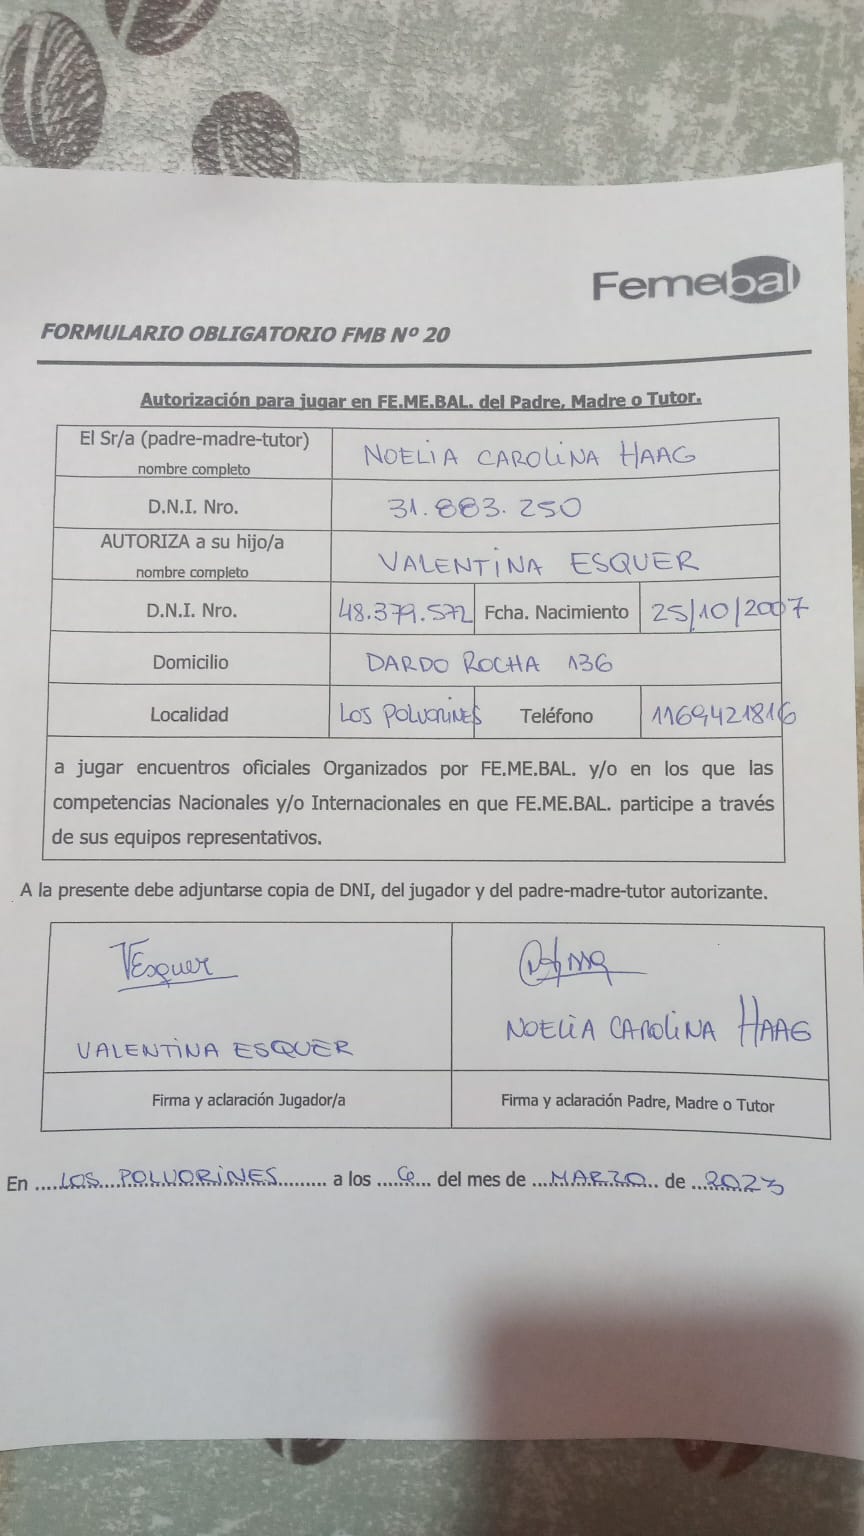 Femebal
FORMULARIO OBLIGATORIO FMB Nº 20
Autorización para jugar en FE.ME.BAL. del Padre, Madre o Tutor.
El Sr/a (padre-madre-tutor) NOELIA CAROLINA HAAG
nombre completo
D.N.I. Nro. 31.883.250
AUTORIZA a su hijo/a VALENTINA ESQUER
nombre completo
D.N.I. Nro. 48.379.572 Fcha. Nacimiento 25/10/2007
Domicilio DARDO ROCHA 136
Localidad LOS POLVORINES Teléfono 1169421816
a jugar encuentros oficiales Organizados por FE.ME.BAL. y/o en los que las
competencias Nacionales y/o Internacionales en que FE.ME.BAL. participe a través
de sus equipos representativos.
A la presente debe adjuntarse copia de DNI, del jugador y del padre-madre-tutor autorizante.
VEsquer
VALENTINA ESQUER NOELIA CAROLINA HAAG
Firma y aclaración Jugador/a Firma y aclaración Padre, Madre o Tutor
En ....LOS POLVORINES......... a los ....6.... del mes de ...MARZO.. de ...2023